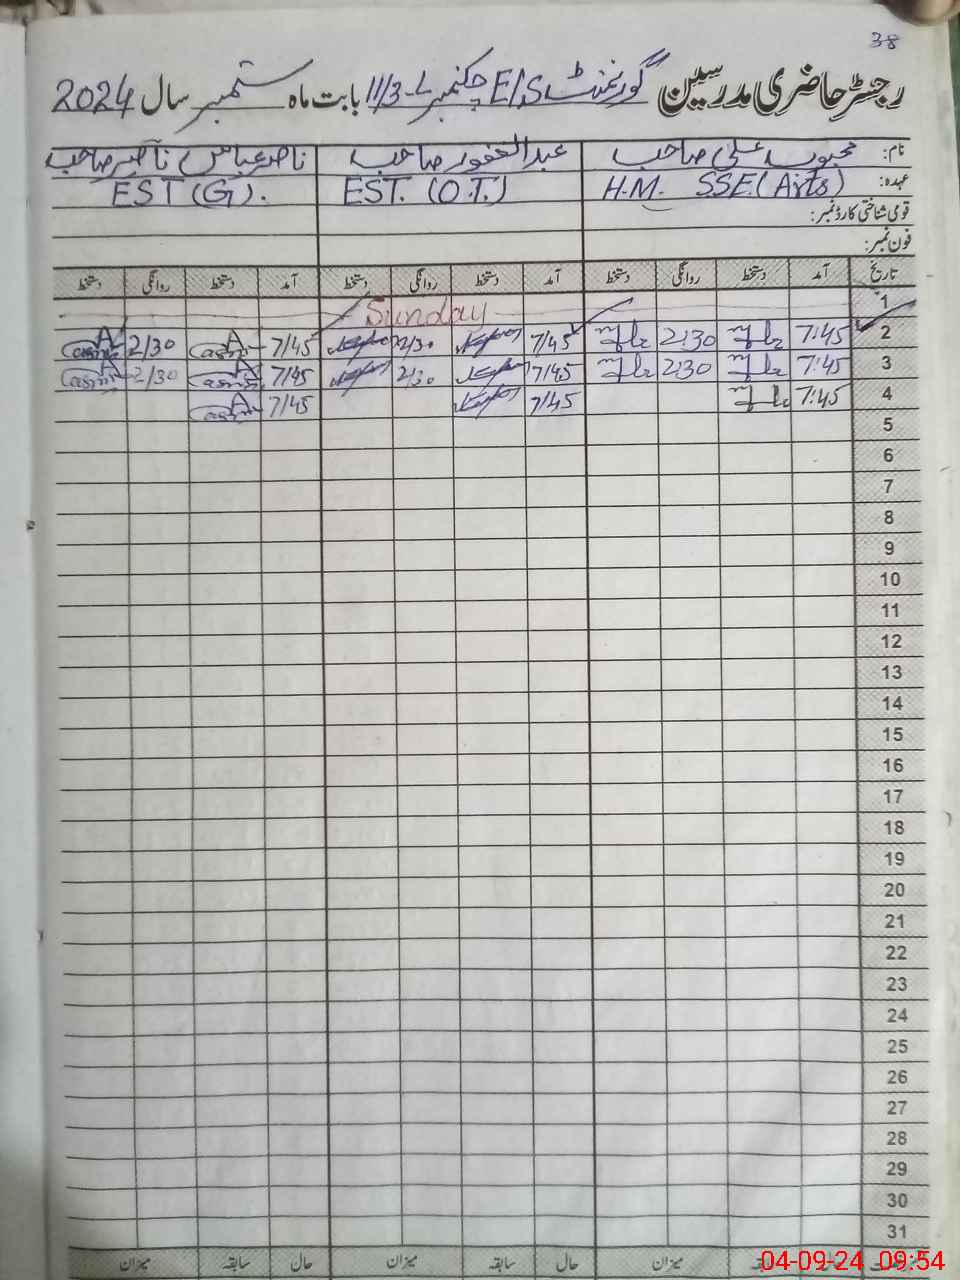 38
رجسٹر حاضری مدرسین گورنمنٹ E/S چکنمبر 11/3-L بابت ماہ ستمبر سال 2024
نام: محبوب علی صاحب عبدالغفور صاحب ناصر عباس ناصر صاحب
عہدہ: H.M. SSE (Arts) EST. (O.T.) EST (G).
قومی شناختی کارڈ نمبر:
فون نمبر:
تاریخ آمد دستخط روانگی دستخط آمد دستخط روانگی دستخط آمد دستخط روانگی دستخط
1 Sunday
2 7:45 2:30 7/45 2/30 7/45 2/30
3 7:45 2:30 7/45 2/30 7/45 2/30
4 7:45 7/45 7/45
5
6
7
8
9
10
11
12
13
14
15
16
17
18
19
20
21
22
23
24
25
26
27
28
29
30
31
میزان حال سابقہ میزان حال سابقہ میزان
04-09-24 09:54